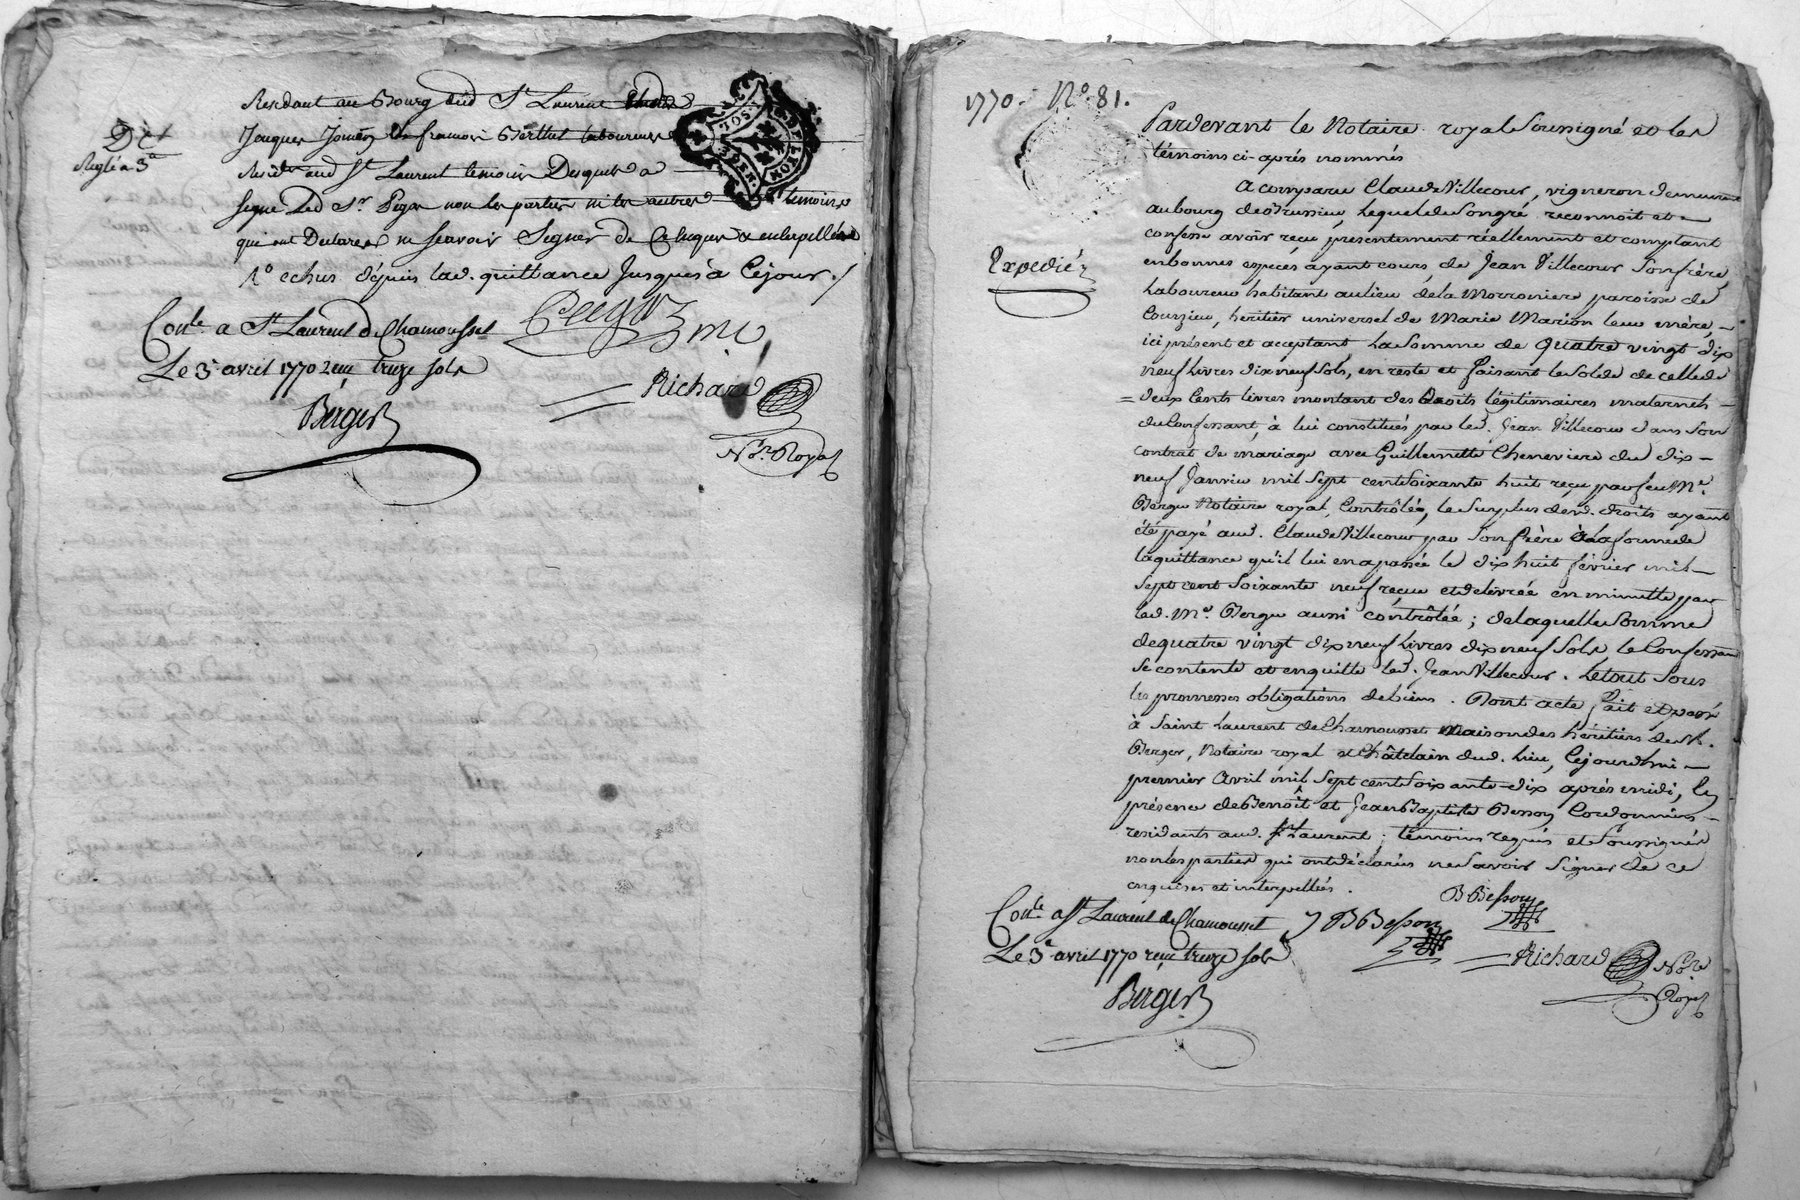 Residant au Bourg dud St Laurent
Jacques françois Berthet laboureur
Dct
Reglé a 3a
Residt aud St Laurent temoins Desquels a
signé Led Sr non les parties ni les autres temoins
qui ont Declarer ne sçavoir Signer de Ce Enquis & enterpellés
echus dépuis lad. quittance Jusques à Cejour ./.
Conlé a St Laurent de Chamousset
Le 3 avril 1770 reçu treize sols
Richard
Berger
Nre Royal
1770. No. 81.
Pardevant le Notaire royal Soussigné et les
témoins ci-aprés nommés
A comparu Claude Villecour, vigneron demeurant
au bourg de Brussieu, Lequel de Songré reconnoit et
confesse avoir reçu présentement réellement et comptant
Expedié
en bonnes espéces ayant cours, de Jean Villecour Son frère
Laboureur habitant au lieu de la Morroniere paroisse de
Courzieu, héritier universel de Marie Marion leur mère,
ici présent et acceptant La Somme de quatre vingt dix
neuf Livres dix neuf Sols, en reste et faisant le Solde de celle de
= deux Cents livres montant des Droits légitimaires maternels
du Confessant, à lui constitués par led. Jean Villecour dans Son
contrat de mariage avec Guillemette Cheneviere du dix
neuf Janvier mil Sept cent Soixante huit reçu par feu Me.
Berger Notaire royal, Contrôlé, le Surplus desd. droits ayant
été payé aud. Claude Villecour par Son frère à la forme de
la quittance qu'il lui en a passée le dix huit février mil
Sept cent Soixante neuf reçue et delivrée en minutte par
led. Me. Berger aussi contrôlée ; de laquelle Somme
de quatre vingt dix neuf Livres dix neuf Sols le Confessant
Se contente et en quitte led. Jean Villecour. Le tout Sous
les promesses obligations de biens. Dont acte fait et passé
à Saint Laurent de Chamousset Maison des héritiers de M.
Berger, Notaire royal et Châtelain dud. Lieu, Cejourdhui
premier Avril mil Sept cent Soixante-dix aprés midi, En
présence de Benoît et Jean Baptiste Besson Cordonniers
residants aud. St Laurent ; témoins requis et Soussignés
non les parties qui ont déclarés ne Savoir Signer de ce
enquises et interpellées.
B Besson
Conlé a St Laurent de Chamousset
J B Besson
Le 3e avril 1770 reçu treize sols
Richard Nre
Royal
Berger